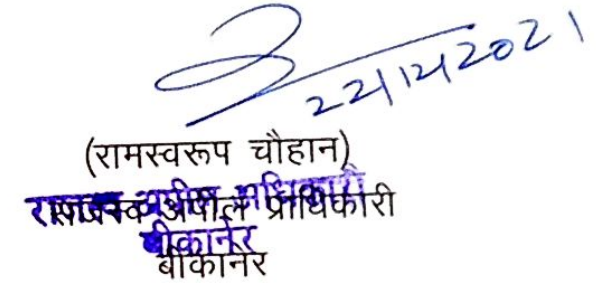 22/12/2021
(रामस्वरूप चौहान)
राजस्व अपील प्राधिकारी
राजस्व अपील अधिकारी
बीकानेर
बीकानेर